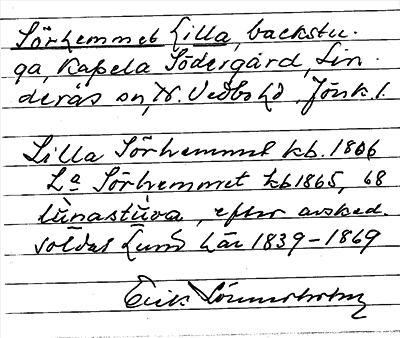 Sörhemmet Lilla, backstu-
ga, Kapela Södergård, Lin-
deräs sn, N. Vedbo hd, Jönk. l.
Lilla Sörhemmet kb. 1806
La Sörhemmet kb 1865, 68
, efter avsked.
soldat Lund här 1839-1869
Erik